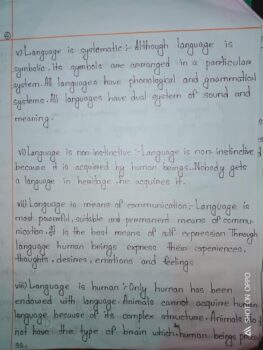 v) Language is systematic :- Although language is
symbolic, its symbols are arranged in a particular
system. All languages have phonological and grammatical
systems. All languages have dual system of sound and
meaning.
vi) Language is non-instinctive :- Language is non-instinctive
because it is acquired by human beings. Nobody gets
a language in heritage, he acquires it.
vii) Language is means of communication :- Language is
most powerful, suitable and permanent means of commu-
nication. It is the best means of self expression. Through
language human beings express their experiences,
thoughts, desires, emotions and feelings.
viii) Language is human :- Only human has been
endowed with language. Animals cannot acquire human
language because of its complex structure. Animals do
not have the type of brain which human beings
SHOT ON OPPO